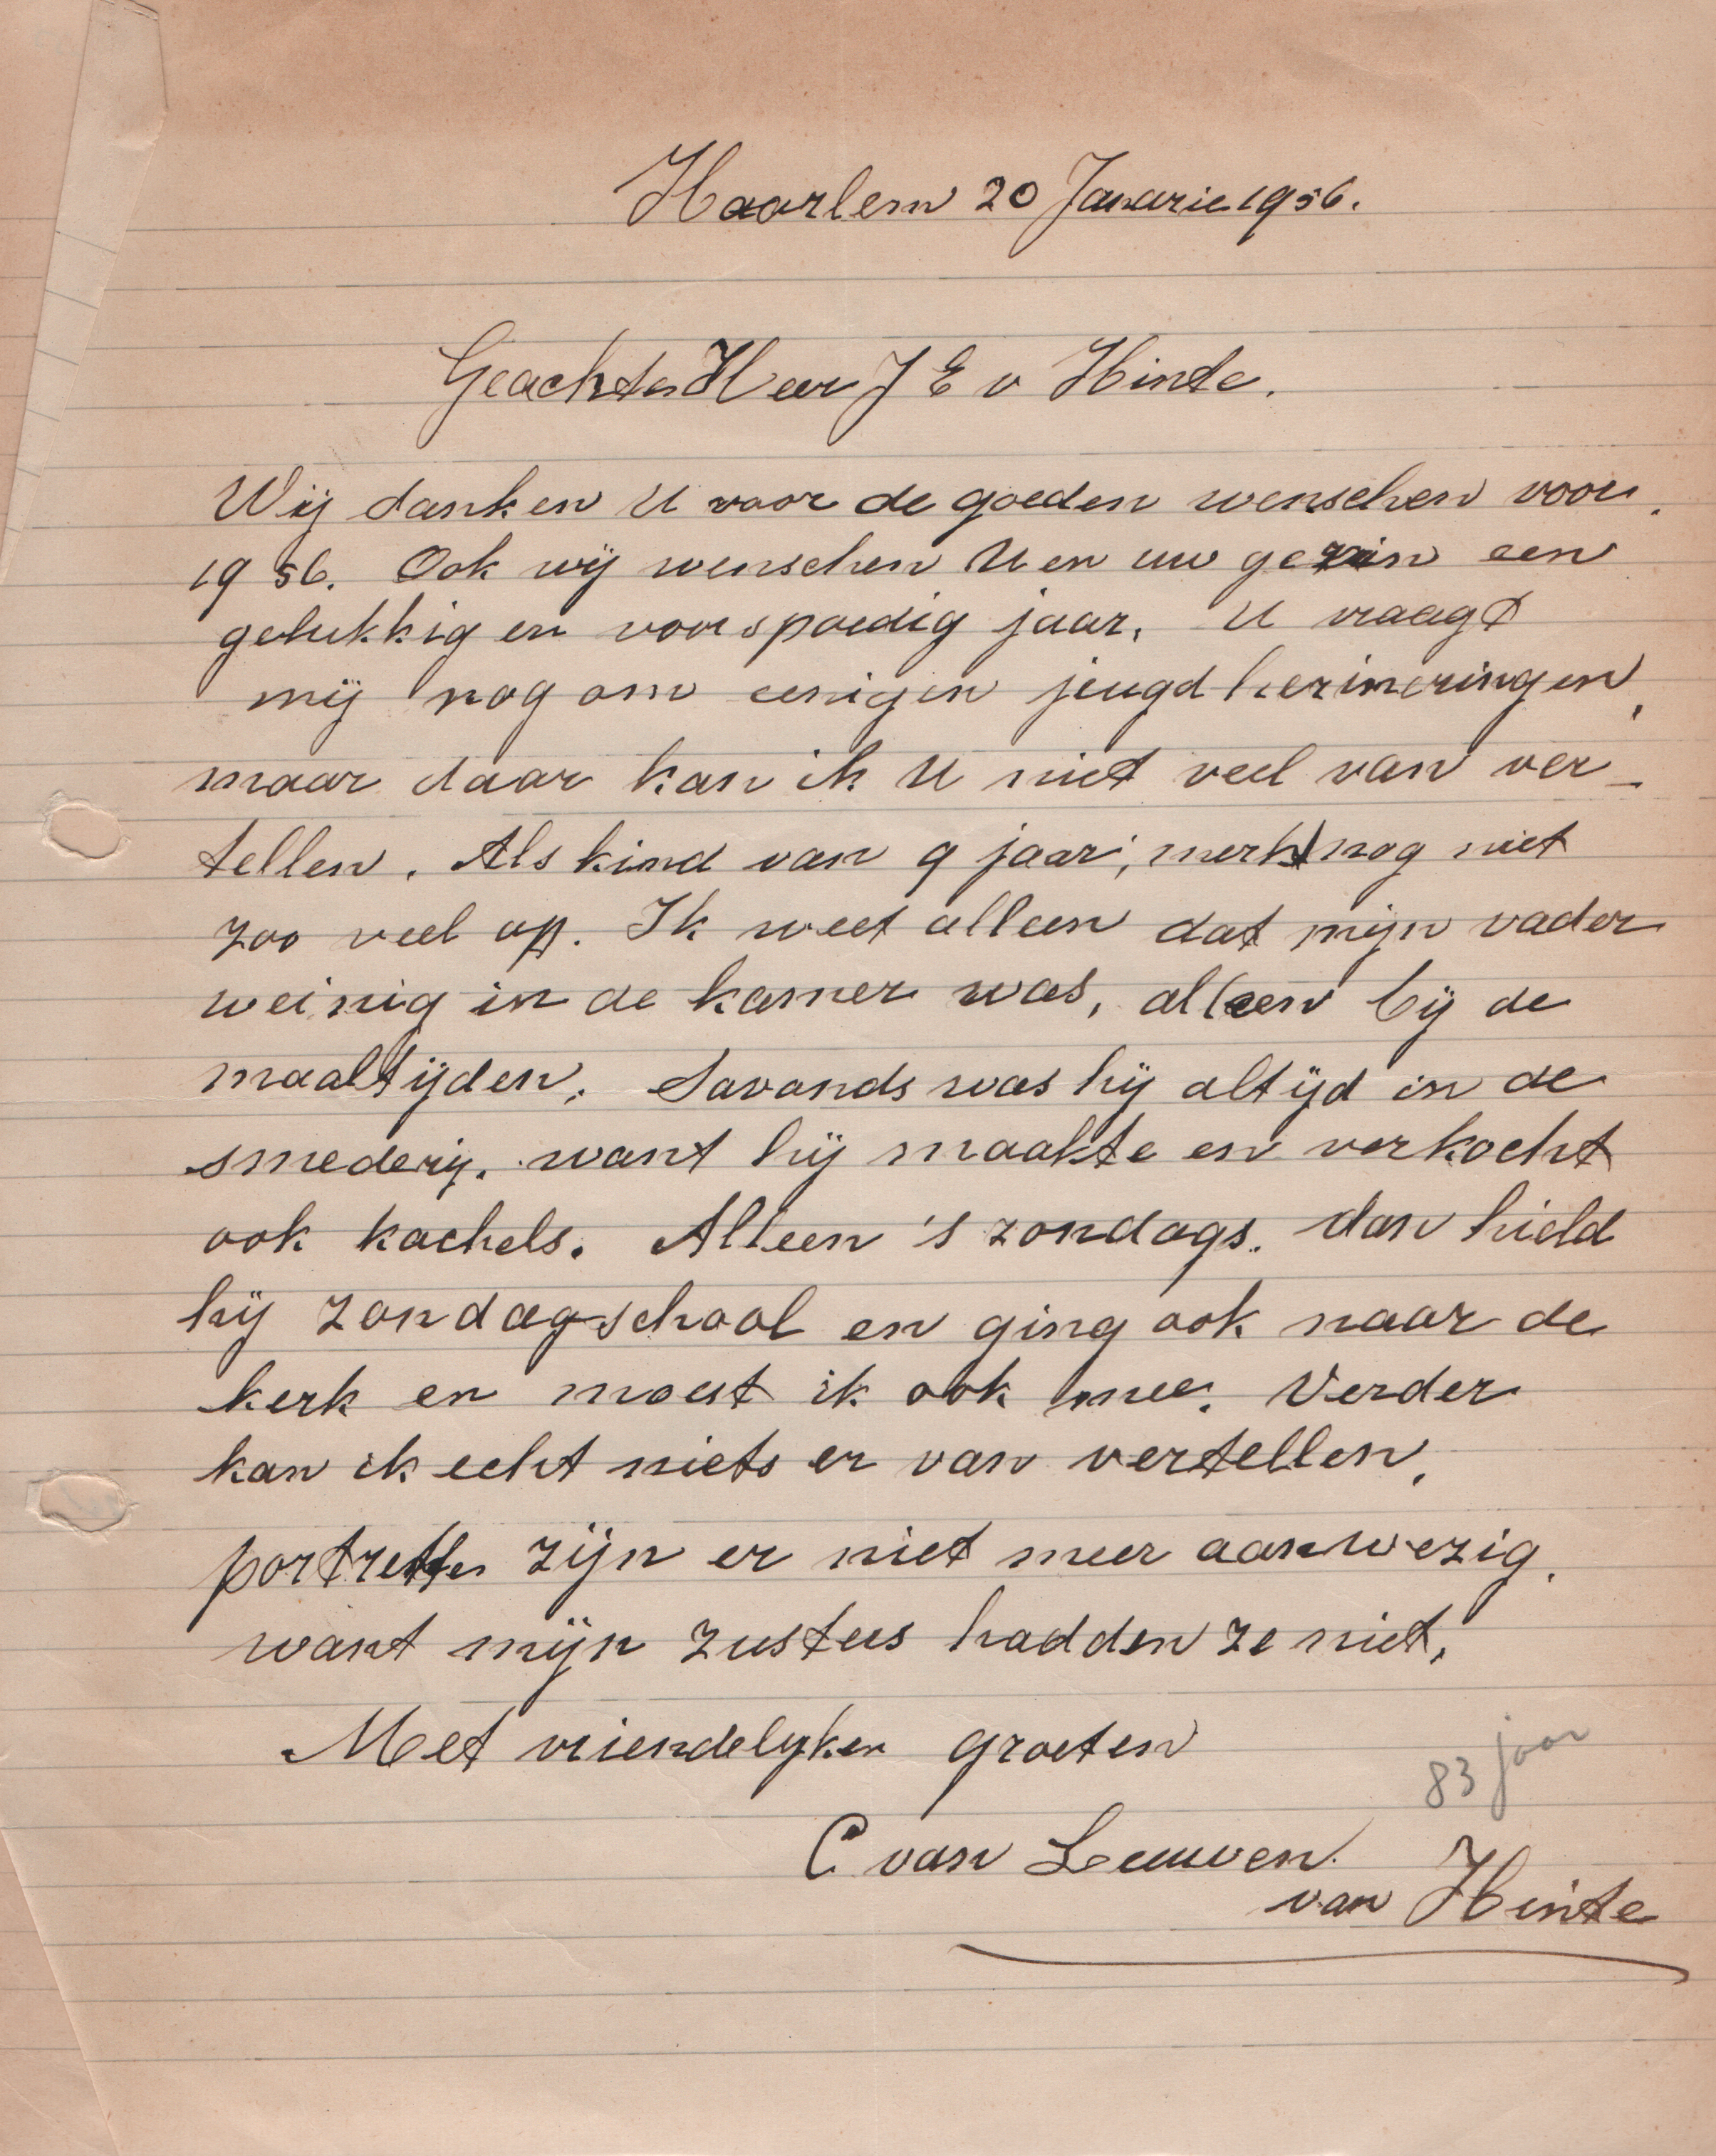 Haarlem 20 Janarie 1956.
Geachte Heer J E v Hinte.
Wij danken U voor de goeden wenschen voor
1956. Ook wij wenschen U en uw gezin een
gelukkig en voorspoedig jaar. U vraagt
mij nog om eenigen jeugd herineringen,
maar daar kan ik U niet veel van ver-
tellen. Als kind van 9 jaar, merkt nog niet
zoo veel op. Ik weet alleen dat mijn vader
weinig in de kamer was, alleen bij de
maaltijden. Savonds was hij altijd in de
smederij. want hij maakte en verkocht
ook kachels. Alleen 's zondags. dan hield
hij zondagschool en ging ook naar de
kerk en moest ik ook mee. Verder
kan ik echt niets er van vertellen.
portretten zijn er niet meer aanwezig.
want mijn zusters hadden ze niet.
Met vriendelyken groeten
83 jaar
C van Leeuwen.
van Hinte